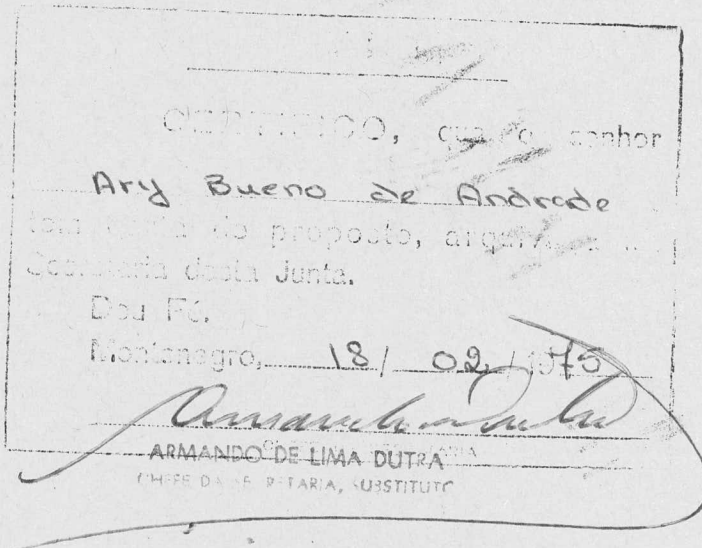 CERTIFICO, que o senhor
Ary Bueno de Andrade
tem carta de preposto, arquivada na
Secretaria desta Junta.
Dou Fé.
Montenegro, 18/ 02 /1975
ARMANDO DE LIMA DUTRA
CHEFE DA SECRETARIA, SUBSTITUTO